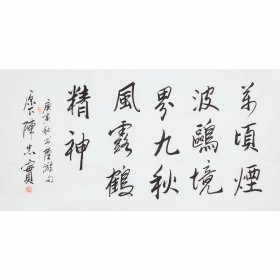 萬頃煙
波鷗境
界九秋
風露鶴
精神
庚寅秋书陸游句
原下陳忠實